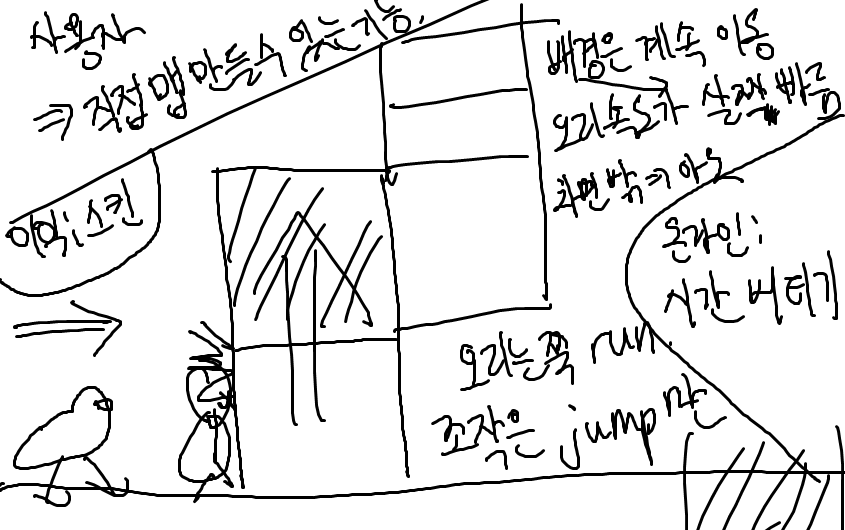 사용자
⇒ 직접 맵 만들수 있는기능.
이익: 스킨
배경은 계속 이동
오리속도가 살짝 빠름
화면 밖 ⇒ 아웃
온라인:
시간 버티기
오리는쭉 run.
조작은 jump만